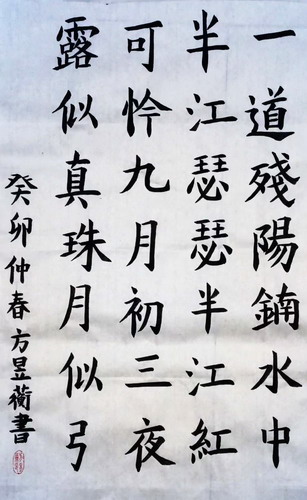 一道殘陽鋪水中
半江瑟瑟半江紅
可怜九月初三夜
露似真珠月似弓
癸卯仲春方昱蘅書